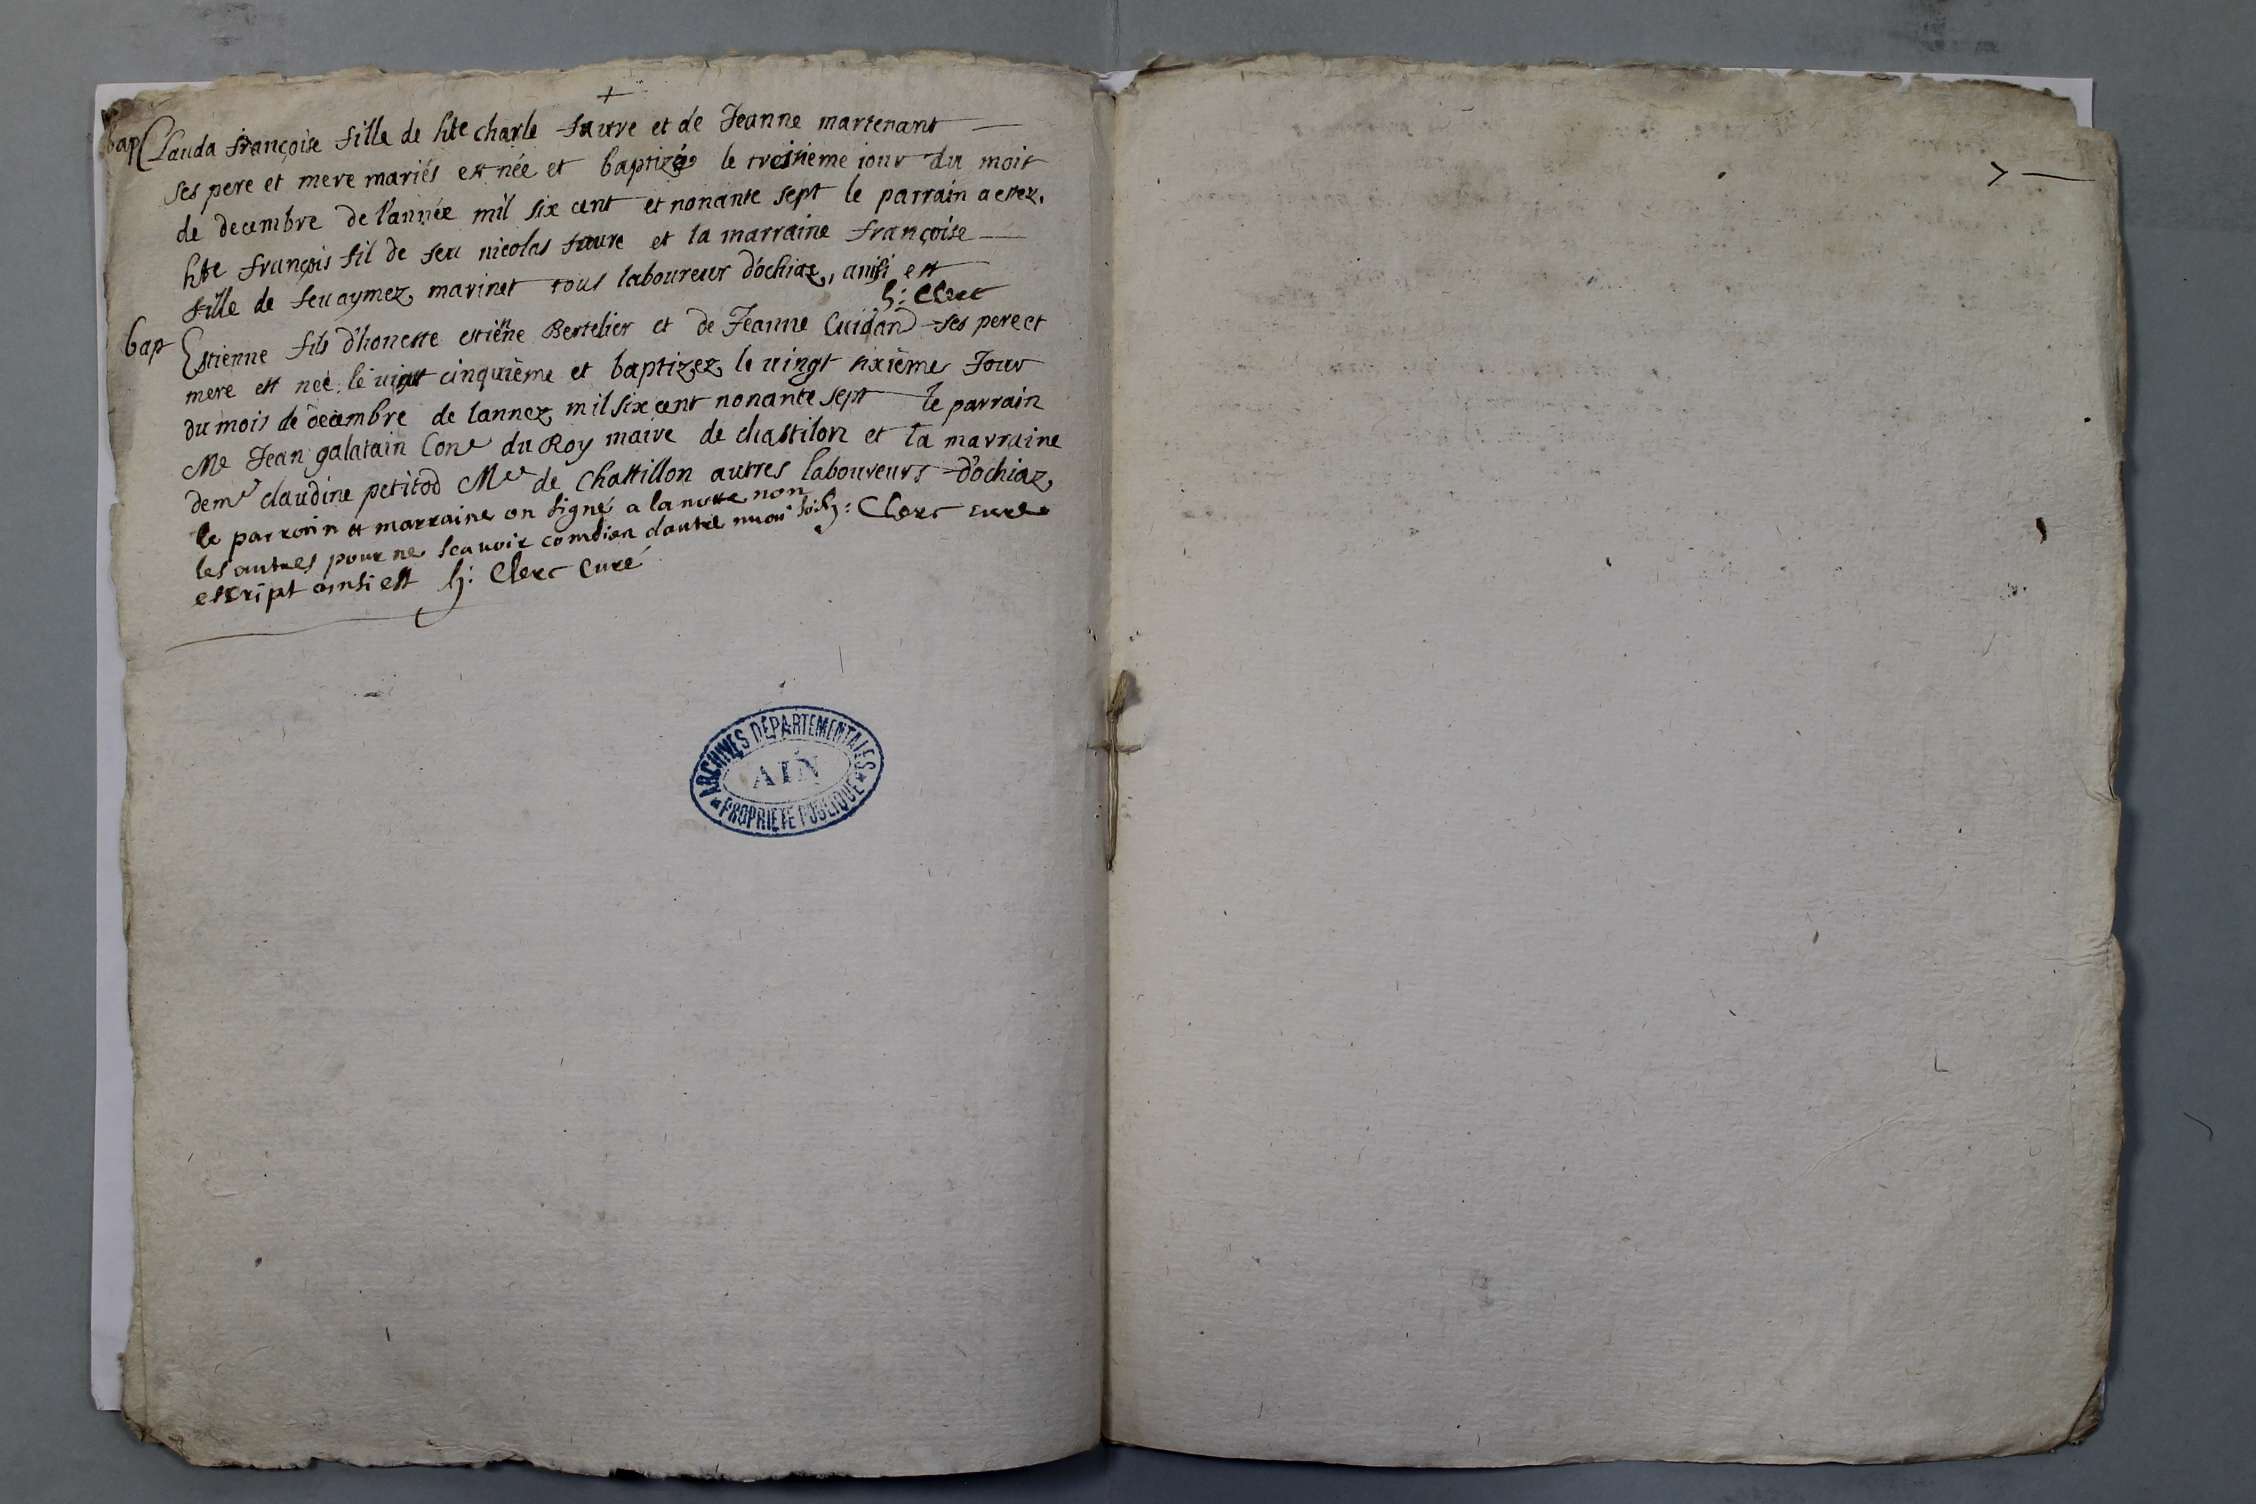 +
bap Clauda françoise fille de hte charle favre et de Jeanne martenant
ses pere et mere mariés est née et baptizée le troisieme iour du mois
de decembre de l'année mil six cent et nonante sept le parrain a estez
hte françois fil de feu nicolas favre et la marraine françoise
fille de feu aymez marinet tous laboureur d'ochiaz, ainsi est
h: Clerc
bap Estienne fils d'honeste estiene Bertelier et de Jeanne Cuidan ses pere et
mere est neé le vingt cinquième et baptizez le vingt sixième Jour
du mois de decembre de lannez mil six cent nonante sept le parrain
Me Jean galatain Cone du Roy maire de chastilon et la marraine
demle claudine petitod Me de Chastillon autres laboureurs d'ochiaz
le parrain et marraine on signé a la notte non
les autres pour ne scavoir combien dautre h: Clerc curé
escript ainsi est h: Clerc Curé
ARCHIVES DÉPARTEMENTALES
AIN
PROPRIÉTÉ PUBLIQUE